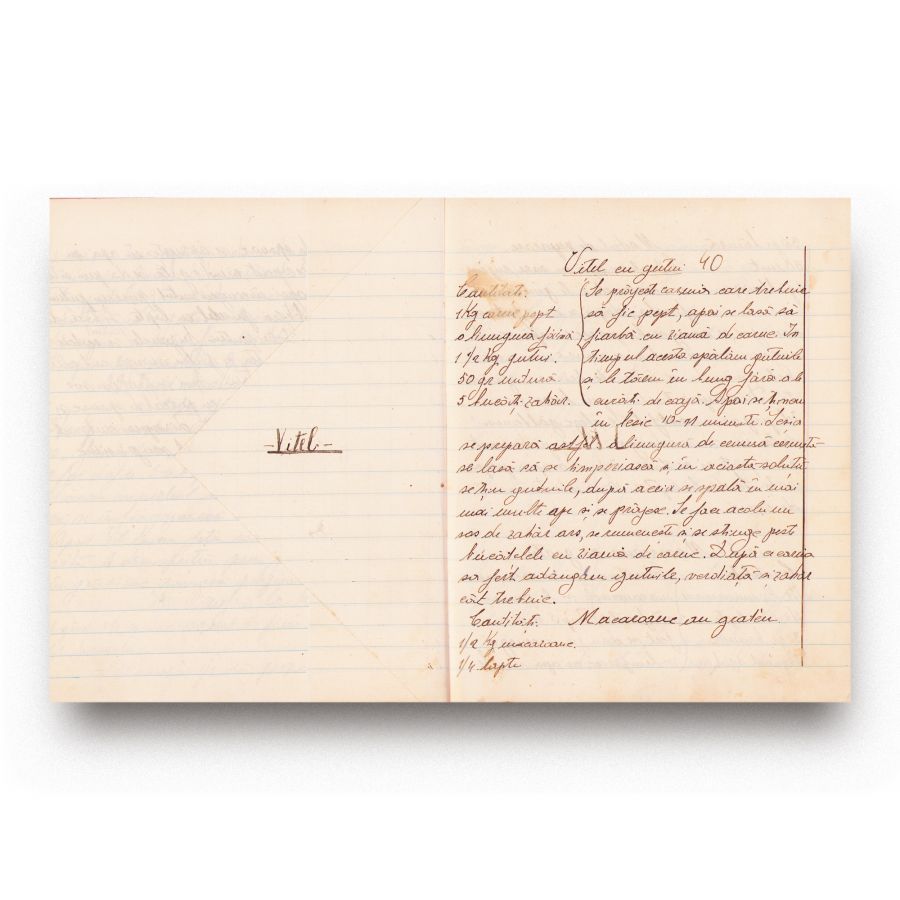 -Vitel.-
Vitel cu gutui 40
Cantitati.
1 Kg carne pept
o lingura faină
1 1/2 Kg gutui.
50 gr untură
5 bucăți zahăr.
Se prăjește carnea care trebuie
să fie pept, apoi se lasă să
fiarbă cu zeamă de carne. In
timpul acesta spălăm gutuile
și le tăiem în lung fără a le
curăți de coajă. Apoi se țin
în lesie 10- minute. Lesia
se prepară astfel o lingură de cenusă cernută
se lasă să se și în aceasta soluție
se țin gutuile, după aceia se spală în mai
mai multe ape și se prăjesc. Se face acolo un
sos de zahăr ars, se rumenesc și se stinge pest
bucățelele cu zeamă de carne. După ce carnea
sa fert adăugăm gutuile, verdiață și zahăr
cât trebuie.
Cantitati. Macaroane au gratin
1/2 Kg macaroane.
1/4 lapte